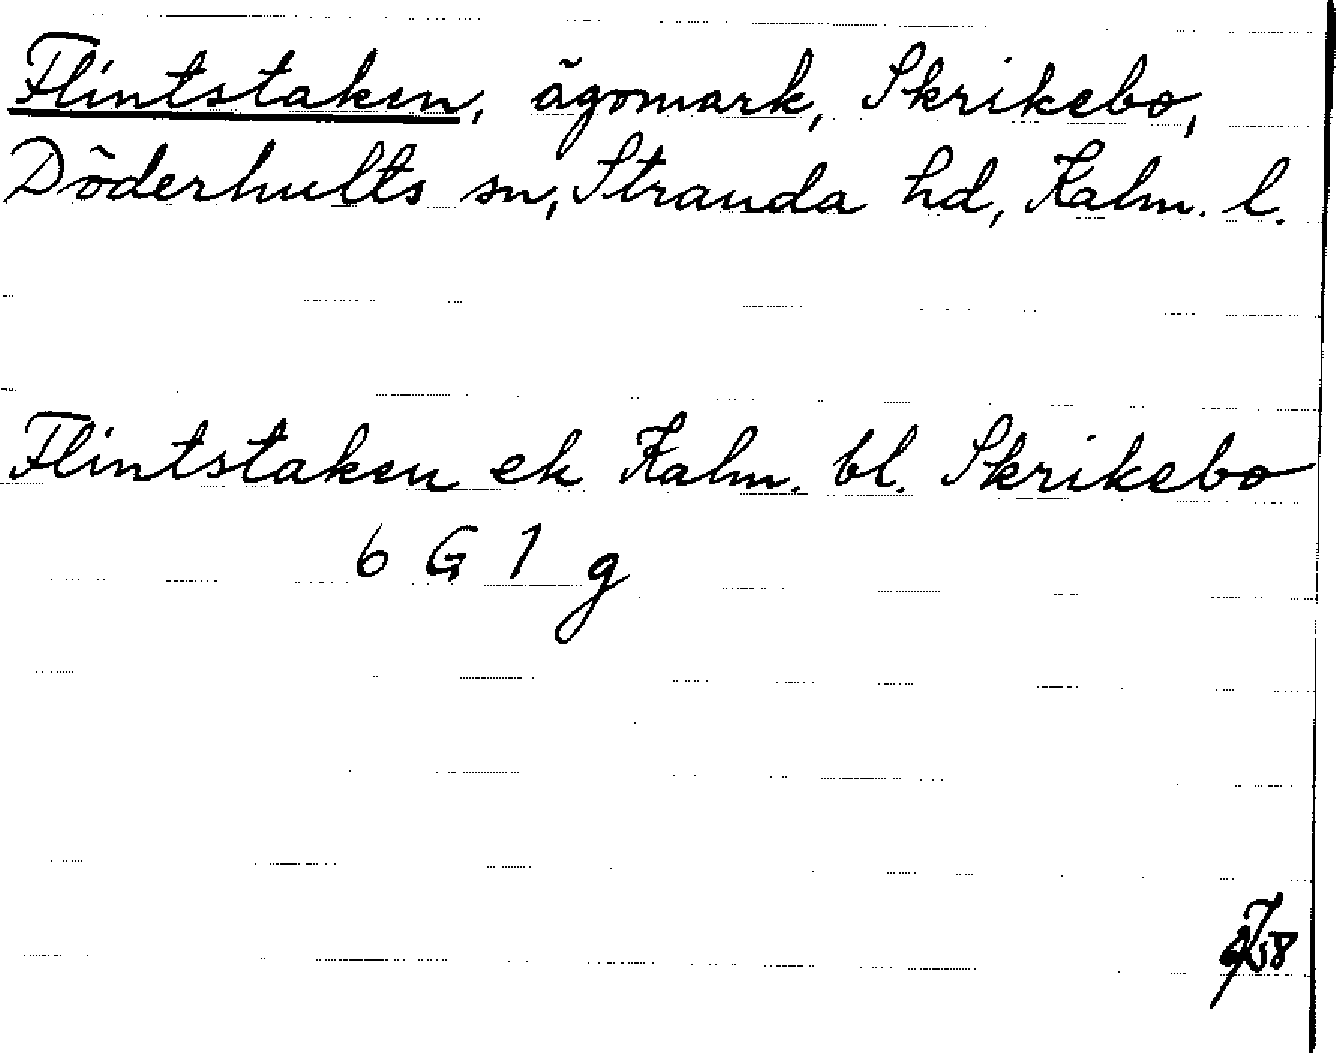 Flintstaken, ägomark, Skrikebo,
Döderhults sn, Stranda hd, Kalm. l.
Flintstaken ek Kalm. bl. Skrikebo
6 G 1 g